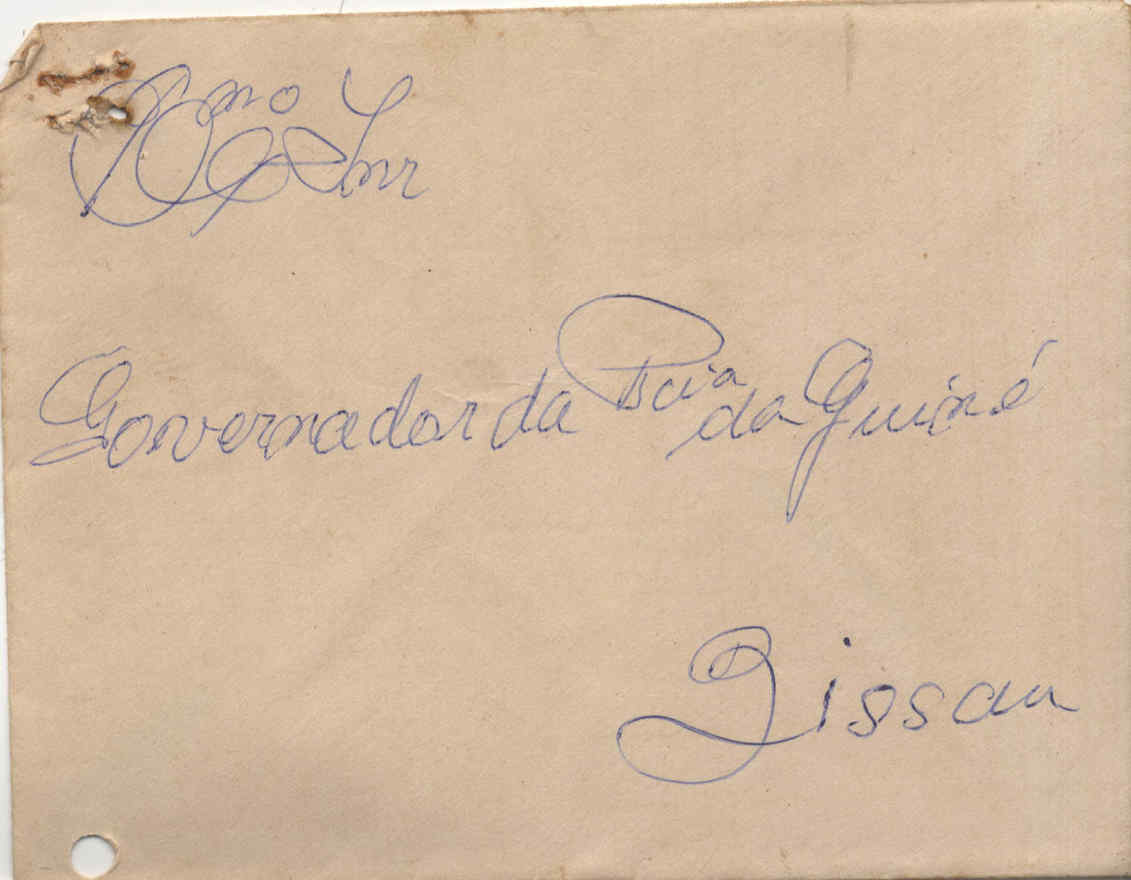 Exmo Snr
Governador da Pcia da Guiné
Bissau